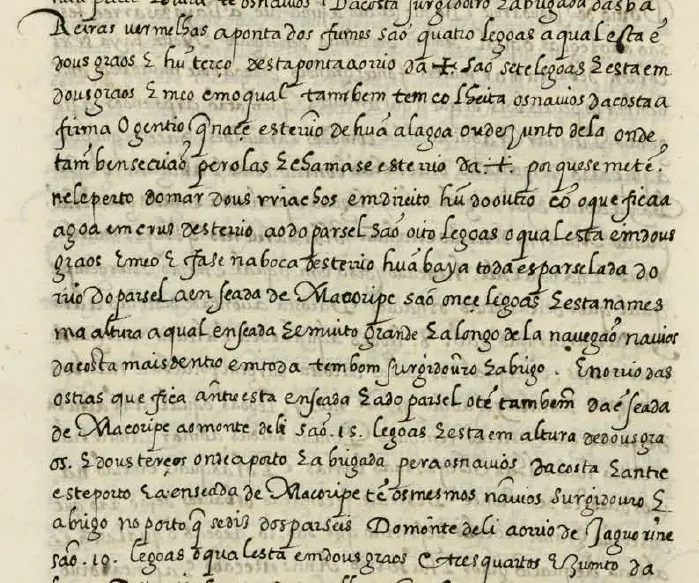 os navios. Da costa surgidouro E abrigada das ba
Reiras vermelhas a ponta dos fumos saõ quatro legoas a qual esta ẽ
dous graos E hũ terço. desta ponta ao rio da ✝ saõ sete legoas E esta em
dous graos E meo em o qual tambem tem colheita os navios da costa a
firma O gentio q̃ naçe este rio de huã alagoa ou de junto dela onde
tambem se criaõ perolas E chamase este rio da .✝. por que se metẽ.
nele perto do mar dous rriachos em direito hũ do outro cõ o que fica a
agoa em crus deste rio ao do parsel saõ oito legoas o qual esta em dous
graos E meo E fase na boca deste rio huã baya toda esparselada do
rio do parsel a enseada de Macoripe saõ onçe legoas E esta na mes
ma altura a qual enseada E muito grande E a longo dela navegaõ navios
da costa mais dentro em toda tem bom surgidouro E abrigo. E no rio das
ostras que fica antre esta enseada E a do parsel o tẽ tambem da ẽseada
de Macoripe ao monte de li saõ .15. legoas E esta em altura de dous gra
os. E dous terços onde a porto E abrigada pera os navios da costa E antre
este porto E a enseada de Macoripe tẽ os mesmos navios surgidouro E
abrigo no porto q̃ se dis dos parseis Do monte de li ao rio de Jaguorive
saõ .10. legoas o qual esta em dous graos E tres quartos E junto da